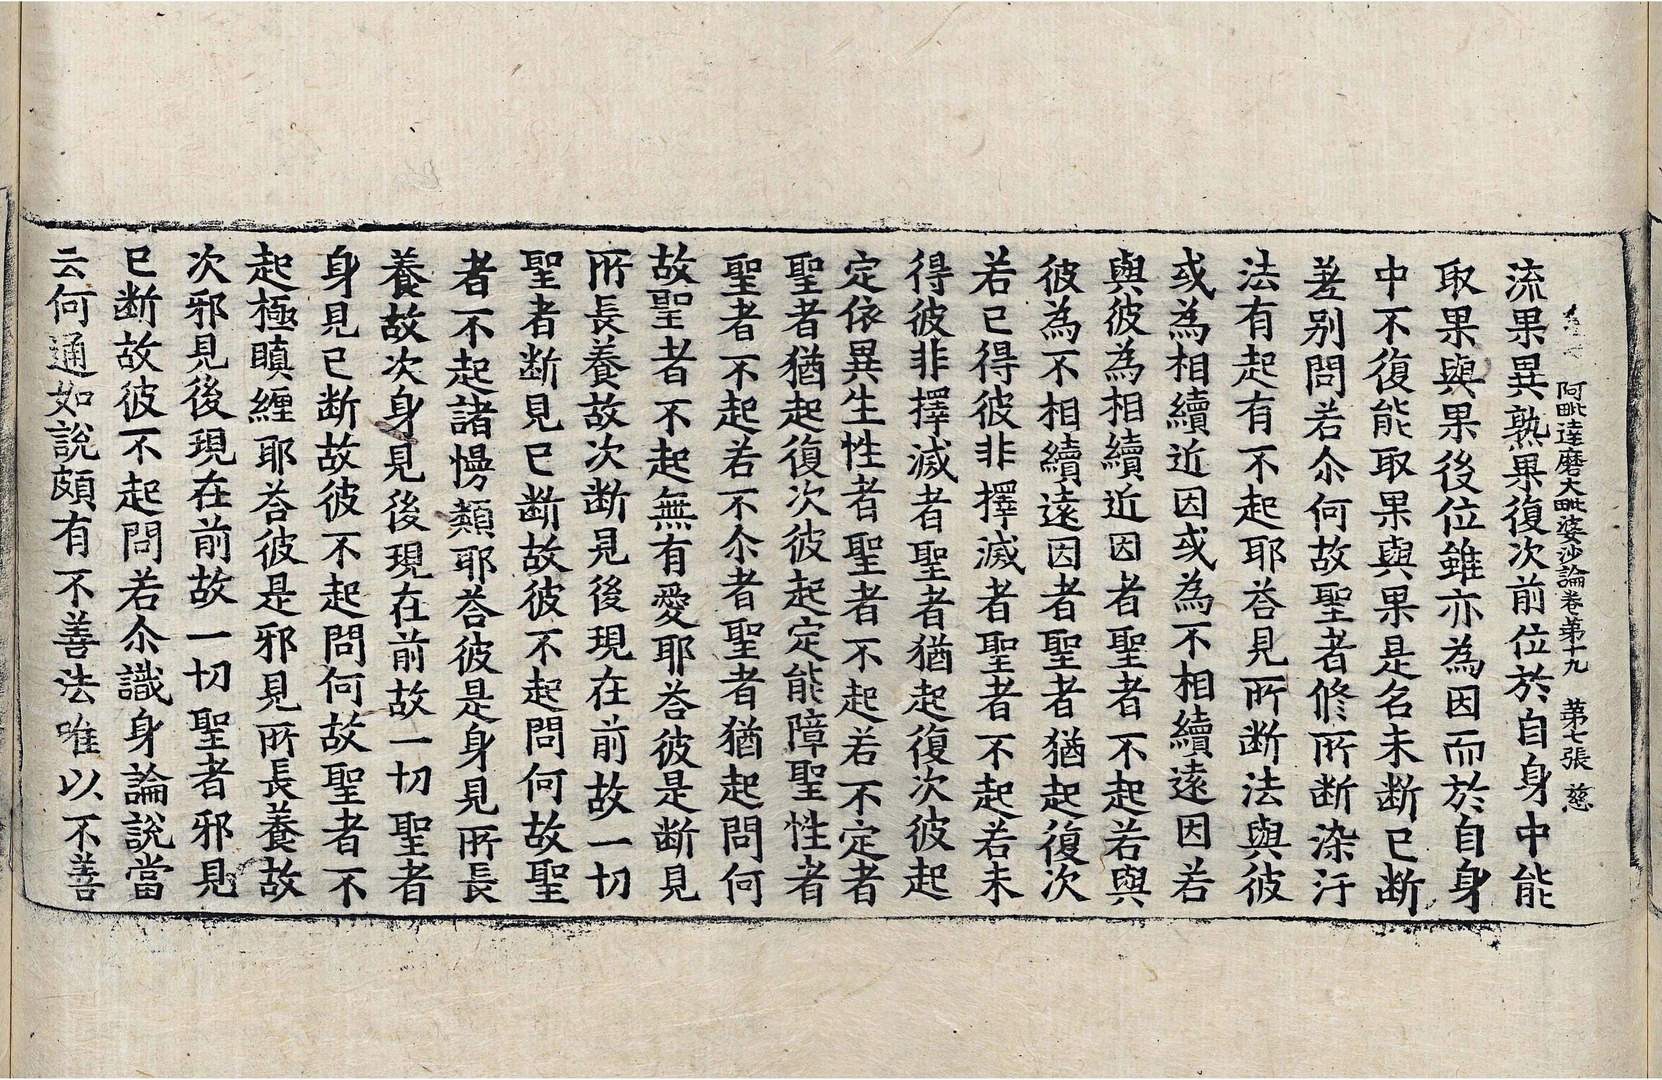 阿毗達磨大毗婆沙論卷第十九　第七張　慈
流果異熟果復次前位於自身中能
取果與果後位雖亦為因而於自身
中不復能取果與果是名未断已断
差别問若尒何故聖者修所断染汙
法有起有不起耶荅見所断法與彼
或為相續近因或為不相續遠因若
與彼為相續近因者聖者不起若與
彼為不相續遠因者聖者猶起復次
若已得彼非擇滅者聖者不起若未
得彼非擇滅者聖者猶起復次彼起
定依異生性者聖者不起若不定者
聖者猶起復次彼起定能障聖性者
聖者不起若不尒者聖者猶起問何
故聖者不起無有愛耶荅彼是断見
所長養故次断見後現在前故一切
聖者断見已断故彼不起問何故聖
者不起諸慢類耶荅彼是身見所長
養故次身見後現在前故一切聖者
身見已断故彼不起問何故聖者不
起極瞋纏耶荅彼是邪見所長養故
次邪見後現在前故一切聖者邪見
已断故彼不起問若尒識身論說當
云何通如說頗有不善法唯以不善